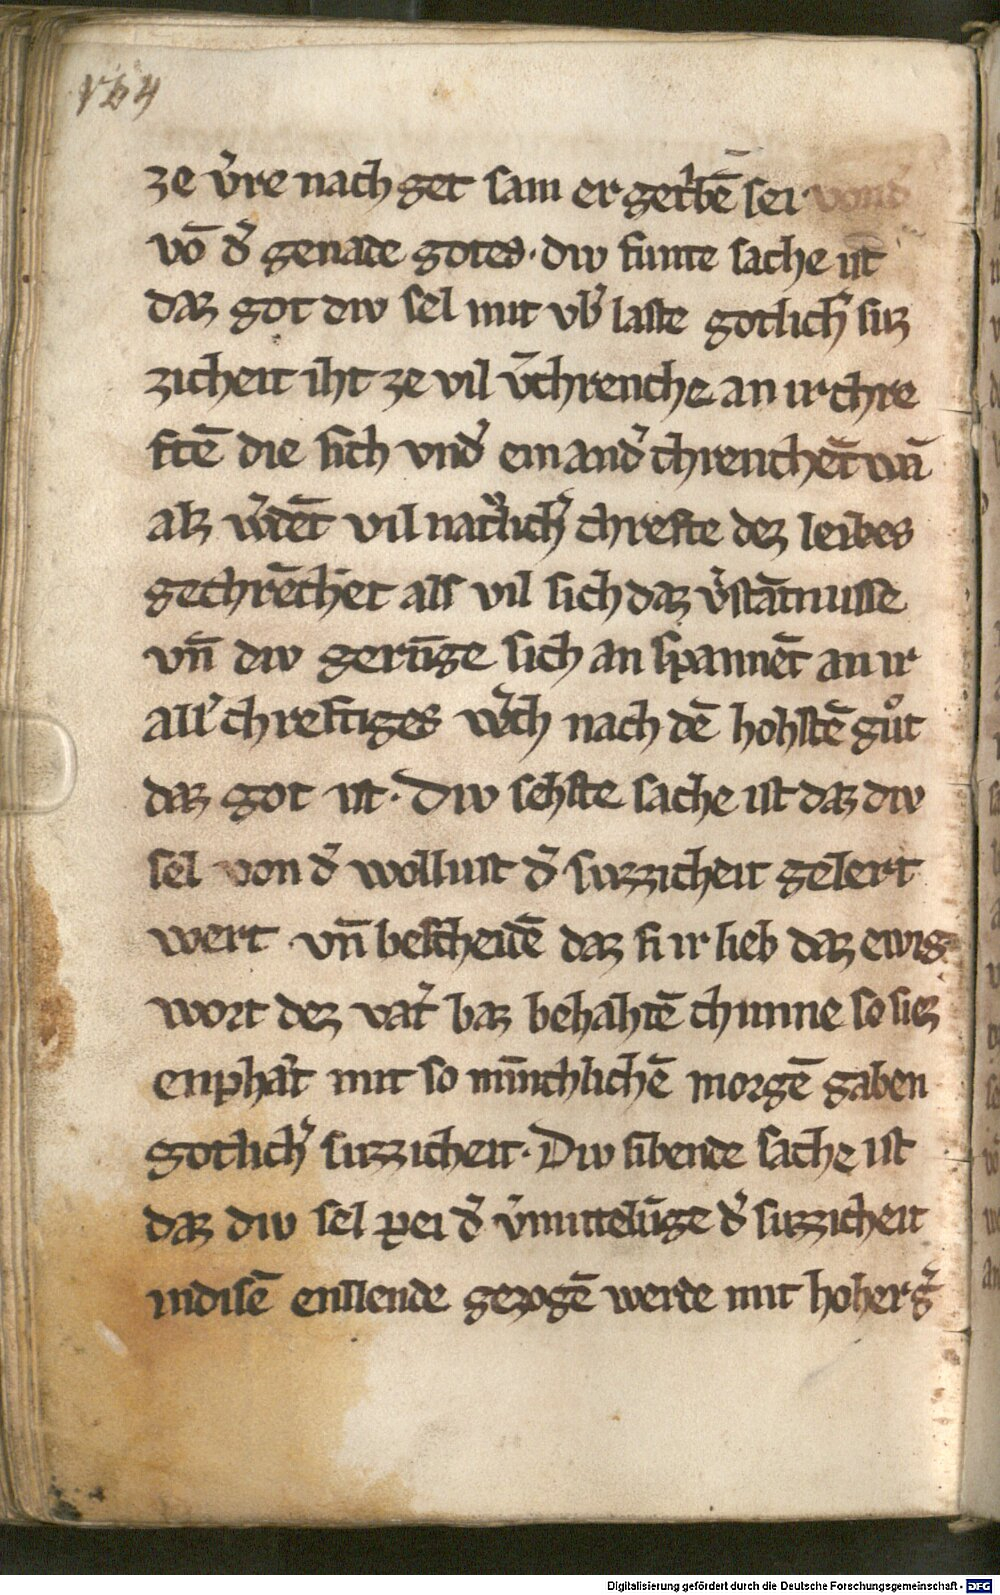 164
ze v̓re nach get sam er get̓bē sei
vō d̓ genade gotes · diw funte sache ist
daz got diw sel mit vb̓ laste gotlich̓ suz
zicheit iht ze vil v̓chrenche an ir chre
ftē die sich vnd̓ ein and̓ chrenchēt wā
alz w̓dēt vil nat̓lich̓ chrefte dez leibes
gechrēchet als vil sich daz v̓stātnusse
vn̄ diw gerūge sich an spannēt an ir
all̓ chreftiges w̓ch nach dē hohstē guͦt
daz got ist · Diw sehste sache ist daz diw
sel von d̓ wollust d̓ suzzicheit gelert
wert vn̄ bescheidē daz si ir lieb daz ewig
wort dez vat̓ baz behahtē chunne so siez
enphat̓ mit so minchlichē morgē gaben
gotlich̓ suzzicheit · Diw sibende sache ist
daz diw sel pei d̓ v̓mittelūge d̓ suzzicheit
in disē enllende gezogē werde mit hoher g̓
Digitalisierung gefördert durch die Deutsche Forschungsgemeinschaft - DFG